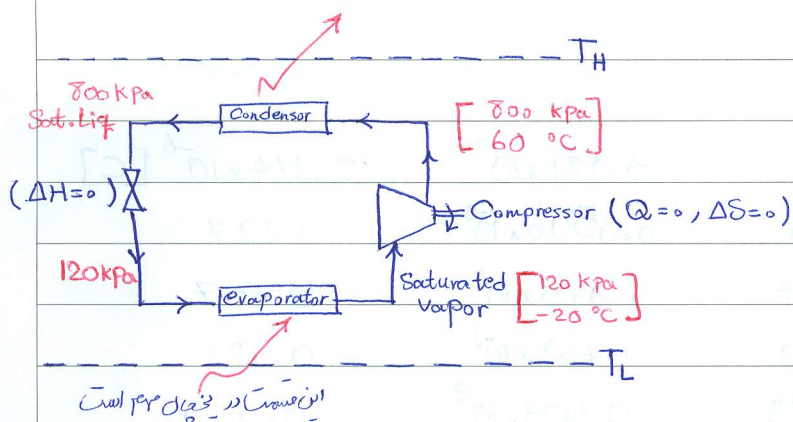 T_H
800 kpa
Sat. Liq
Condensor
[ 800 kpa
60 °C ]
(ΔH=0)
Compressor (Q=0, ΔS=0)
120 kpa
evaporator
Saturated
vapor
[ 120 kpa
-20 °C ]
T_L
این قسمت در یخچال مهم است